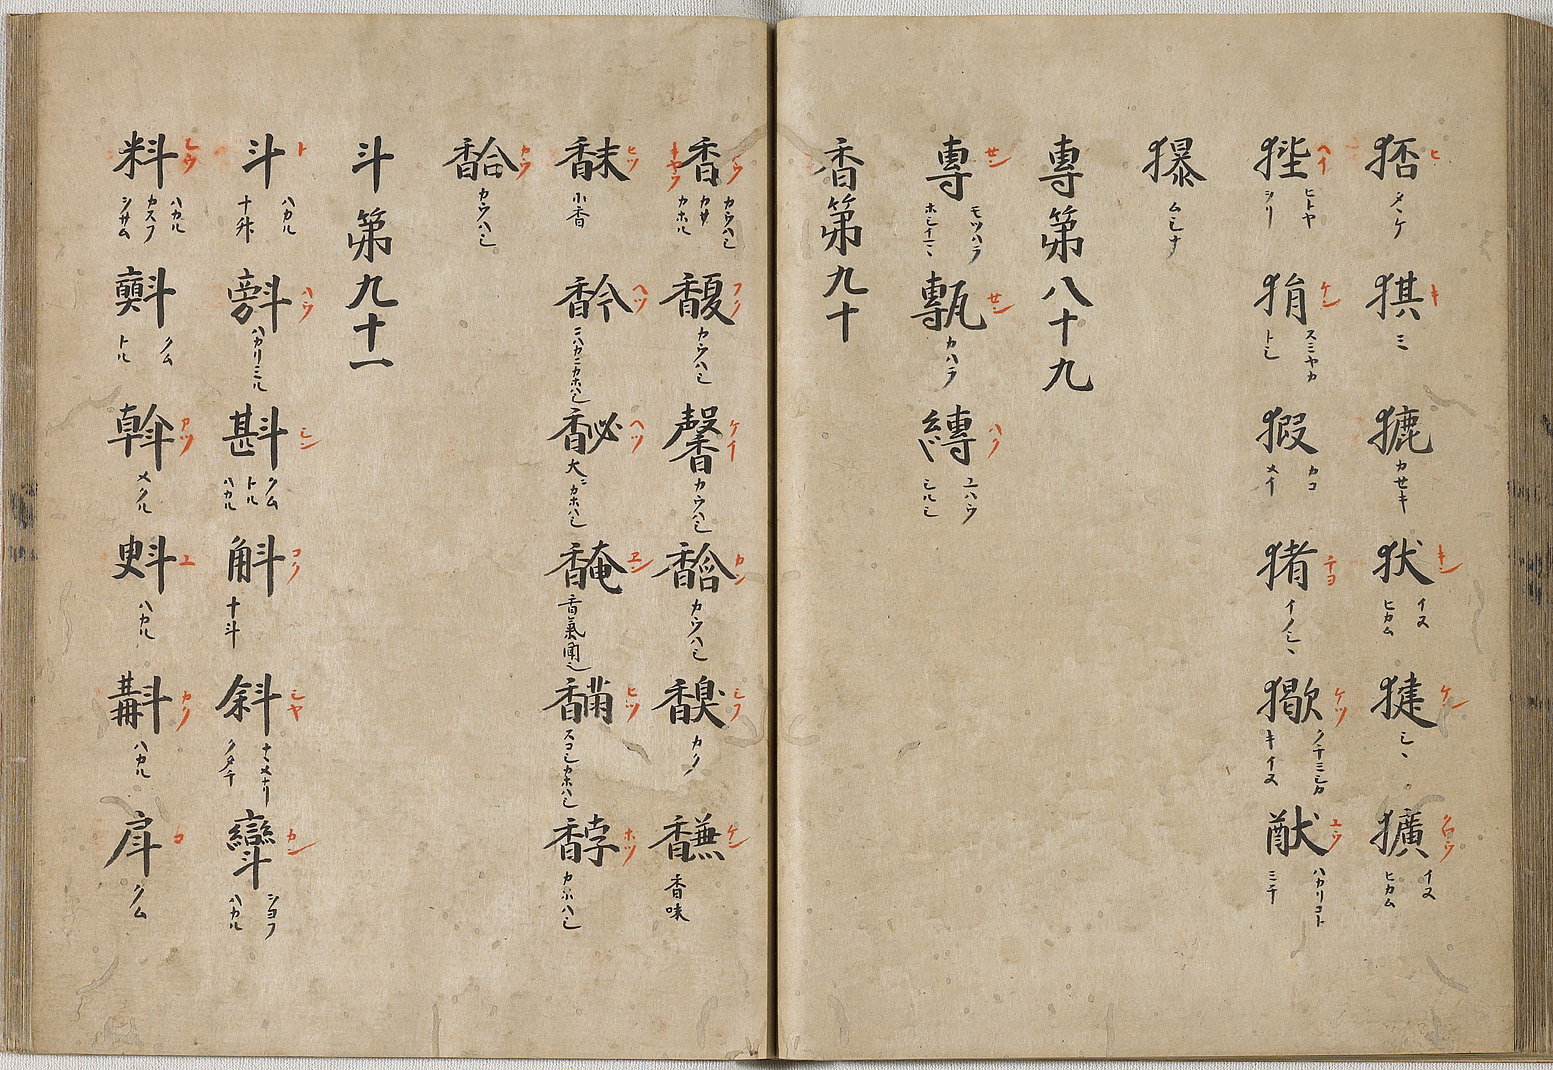 ヒ
猉 キ ミ カセキ 㹜 イヌ ヒカム ケン シヽ 獷 クワウ イヌ ヒカム
狴 ヘイ ヒトヤ シリ 狷 ケン スミヤカ トシ 猳 カコ メイ 猪 チヨ イノシヽ ケツ クチミシカキイヌ 猷 ユウ ハカリコト ミチ
ムシナ
專第八十九
專 セン モツハラ ホシイマヽ 甎 セン カハラ 縳 ハク ユハウ シルシ
香第九十
香 カウ キヤウ カウハシ カサ カホル 馥 フク カウハシ 馨 ケイ カウハシ カン カウハシ カク 馦 ケン 香味
䬴 ヒツ 小香 ヘツ 馝 ヘツ 大ニカホハシ 馣 ヱン 香氣聞之 ヒツ スコシカホハシ 馞 ホツ カホハシ
馠 カウ カウハシ
斗第九十一
斗 ト ハカル 十升 ハウ ハカリミル 斟 シン クム トル ハカル 斛 コク 十斗 斜 シヤ ナヽメナリ クタチ カン ショフ ハカル
料 レウ ハカル カスフ シサム クム トル 斡 アツ メクル 斞 ユ ハカル 斠 カク ハカル 戽 コ クム